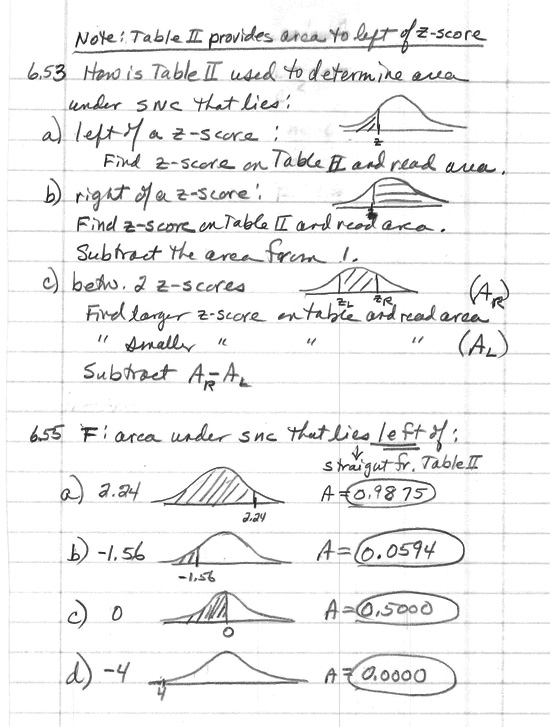 Note: Table II provides area to left of z-score
6.53 How is Table II used to determine area
under snc that lies:
a) left of a z-score:
z
Find z-score on Table II and read area.
b) right of a z-score:
z
Find z-score on Table II and read area.
Subtract the area from 1.
c) betw. 2 z-scores
zL zR
(AR)
Find larger z-score on table and read area
" smaller " " " (AL)
Subtract AR-AL
6.55 F: area under snc that lies left of:
↓
straigut fr. Table II
a) 2.24 2.24 A = 0.9875
b) -1.56 -1.56 A = 0.0594
c) 0 0 A = 0.5000
d) -4 -4 A = 0.0000